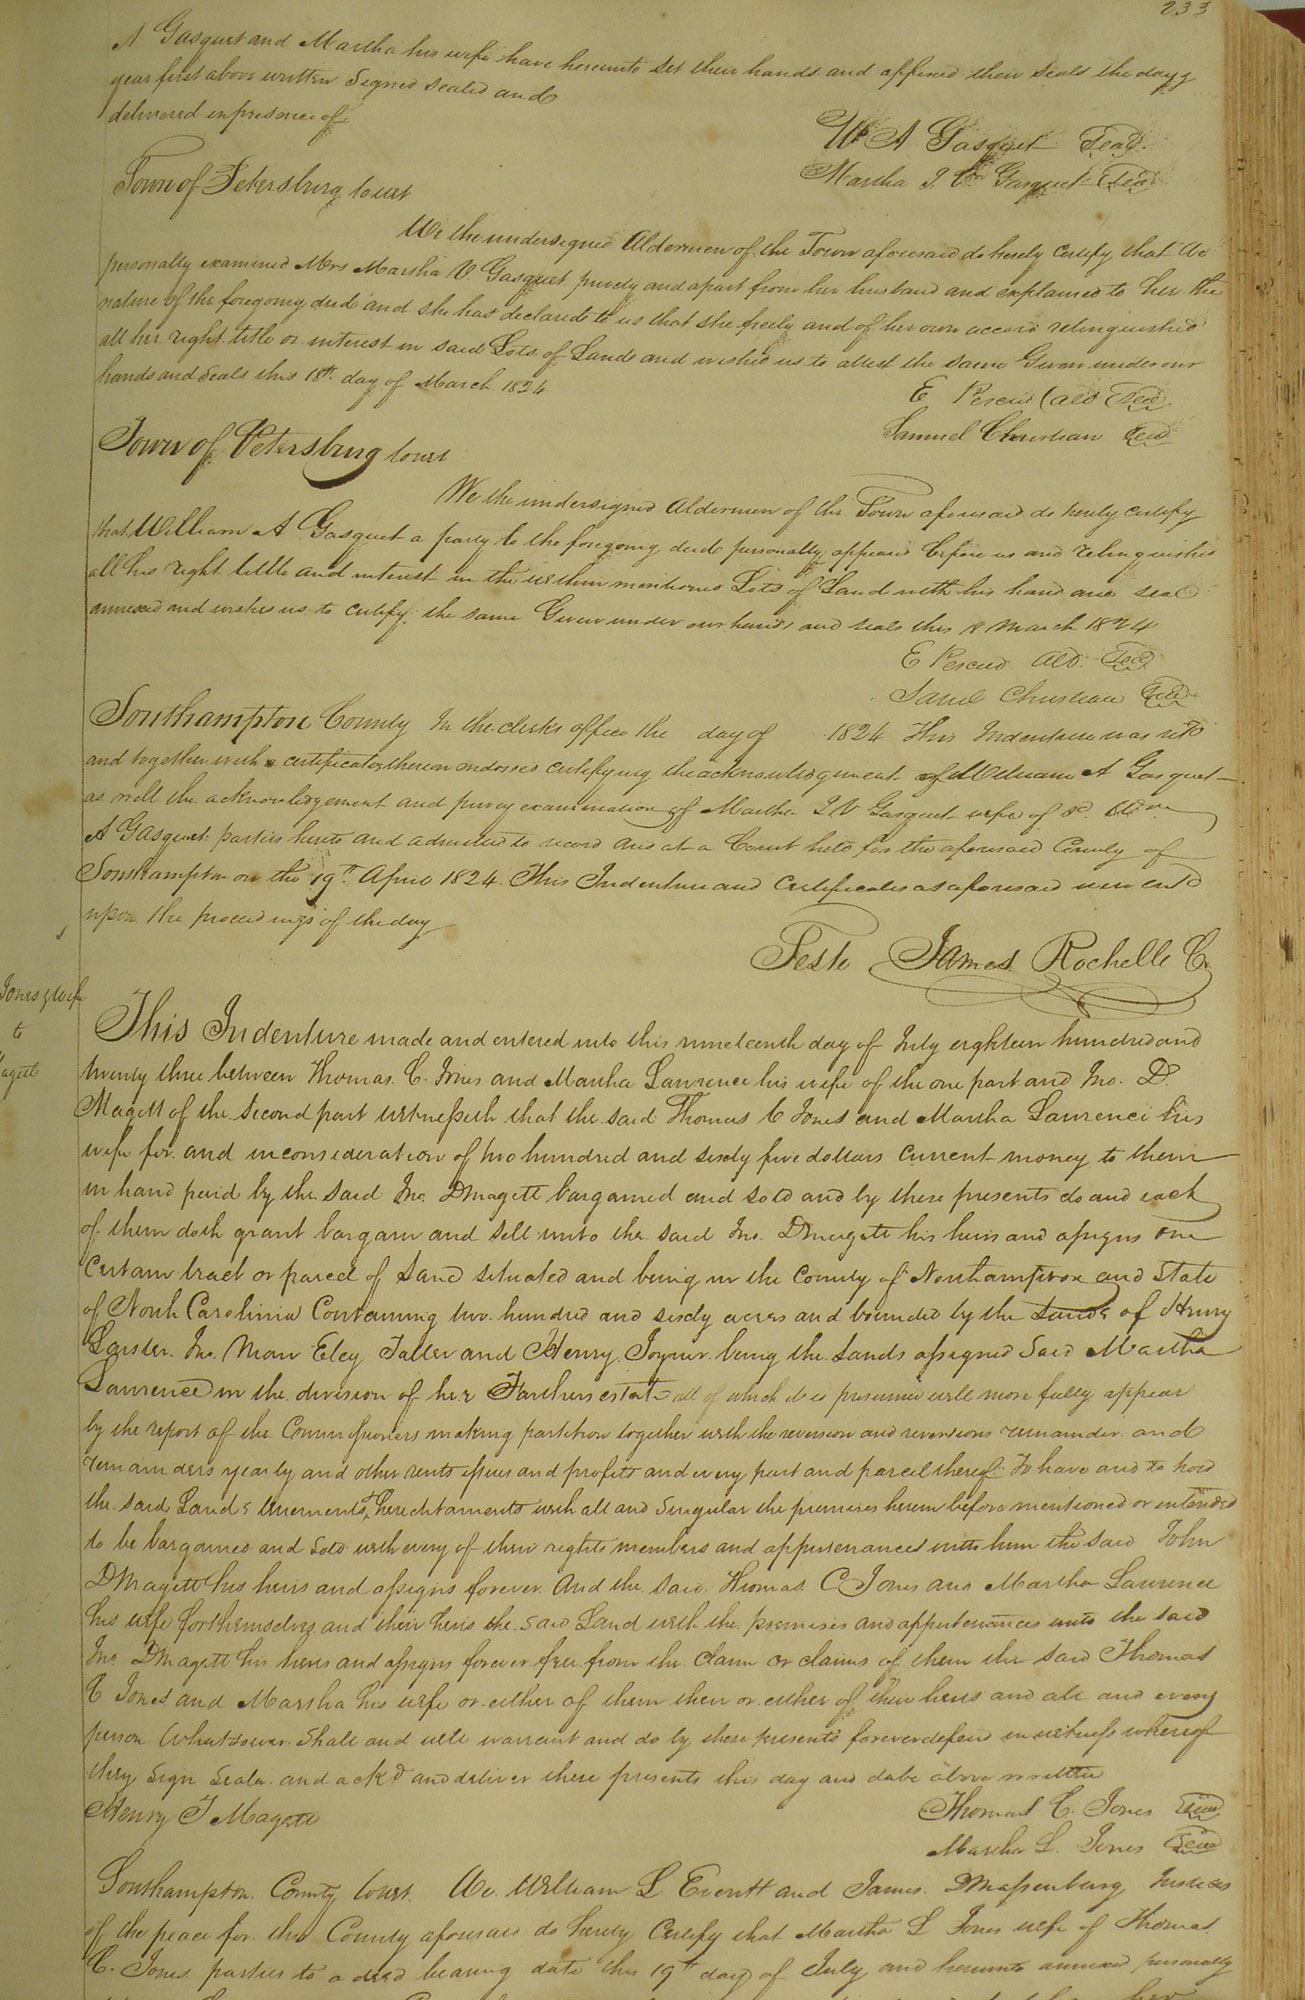 233
A Gasquet and Martha his wife have hereunto set their hands and affixed their seals the day &
year first above written Signed sealed and
delivered in presence of
Wm A Gasquet Seal
Martha J. V. Gasquet Seal
Town of Petersburg towit
We the undersigned Aldermen of the Town aforesaid do hereby Certify that We
personally examined Mrs Martha V Gasquet privily and apart from her husband and explained to her the
nature of the foregoing deed and she has declared to us that she freely and of her own accord relinquished
all her right title or interest in said Lots of Lands and wished us to attest the same Given under our
hands and Seals this 18th day of March 1824
E Pescud (ald Seal
Samuel Christian Seal
Town of Petersburg towit
We the undersigned Aldermen of the Town aforesaid do hereby certify
that William A Gasquet a party to the foregoing deed personally appeared before us and relinquished
all his right title and interest in the within mentioned Lots of Land with his hand and seal
annexed and wishes us to certify the same Given under our hands and seals this March 1824
E Pescud Ald. Seal
Saml Christian Seal
Southampton County In the clerks office the day of 1824 This Indenture was recd
and together with certificates thereon endorsed certifying the acknowledgment of William A Gasquet
as well the acknowledgement and privy examination of Martha J V Gasquet wife of sd. Wm
A Gasquet parties hereto and admitted to record and at a Court held for the aforesaid County of
Southampton on the 19th April 1824 This Indenture and Certificates as aforesaid were entd
upon the proceedings of the day
Teste James Rochelle C.
Jones & wife
to
Magett
This Indenture made and entered into this nineteenth day of July eighteen hundred and
twenty three between Thomas C. Jones and Martha Lawrence his wife of the one part and Jno. D.
Magett of the Second part witnesseth that the said Thomas C Jones and Martha Lawrence his
wife for and in consideration of two hundred and sixty five dollars current money to them
in hand paid by the said Jno DMagett bargained and sold and by these presents do and each
of them doth grant bargain and sell unto the said Jno. DMagett his heirs and assigns one
certain tract or parcel of Land situated and being in the County of Northampton and State
of North Carolinia Containing two hundred and sixty acres and bounded by the Lands of Henry
Lasiter Jno. Mow Eley Faller and Henry Joyner being the Lands assigned Said Martha
Lawrence in the division of her Farthers estate all of which it is presumed will more fully appear
by the report of the Commissioners making partition together with the reversion and reversions remainder and
remainders yearly and other rents issues and profits and every part and parcel thereof To have and to hold
the said Lands tenements, hereditaments with all and Singular the premises herein before mentioned or intended
to be bargained and Sold with every of their rights members and appurtenances unto him the said John
DMagett his heirs and assigns forever. And the said Thomas C Jones and Martha Lawrence
his wife for themselves and their heirs the said Land with the premises and appurtenances unto the said
Jno. DMagett his heirs and assigns forever free from the Claim or claims of them the said Thomas
C Jones and Martha his wife or either of them their or either of their heirs and all and every
person Whatsoever Shall and will warrant and do by these presents forever defend in witness whereof
they Sign Seala and ackd and deliver these presents this day and date above written
Henry J Magett
Thomas C. Jones Seal
Martha L. Jones Seal
Southampton County towit. We William L Everitt and James DMassenburg Justices
of the peace for the County aforesaid do hereby Certify that Martha L Jones wife of Thomas
C. Jones parties to a deed bearing date this 19th day of July and hereunto annexed personally